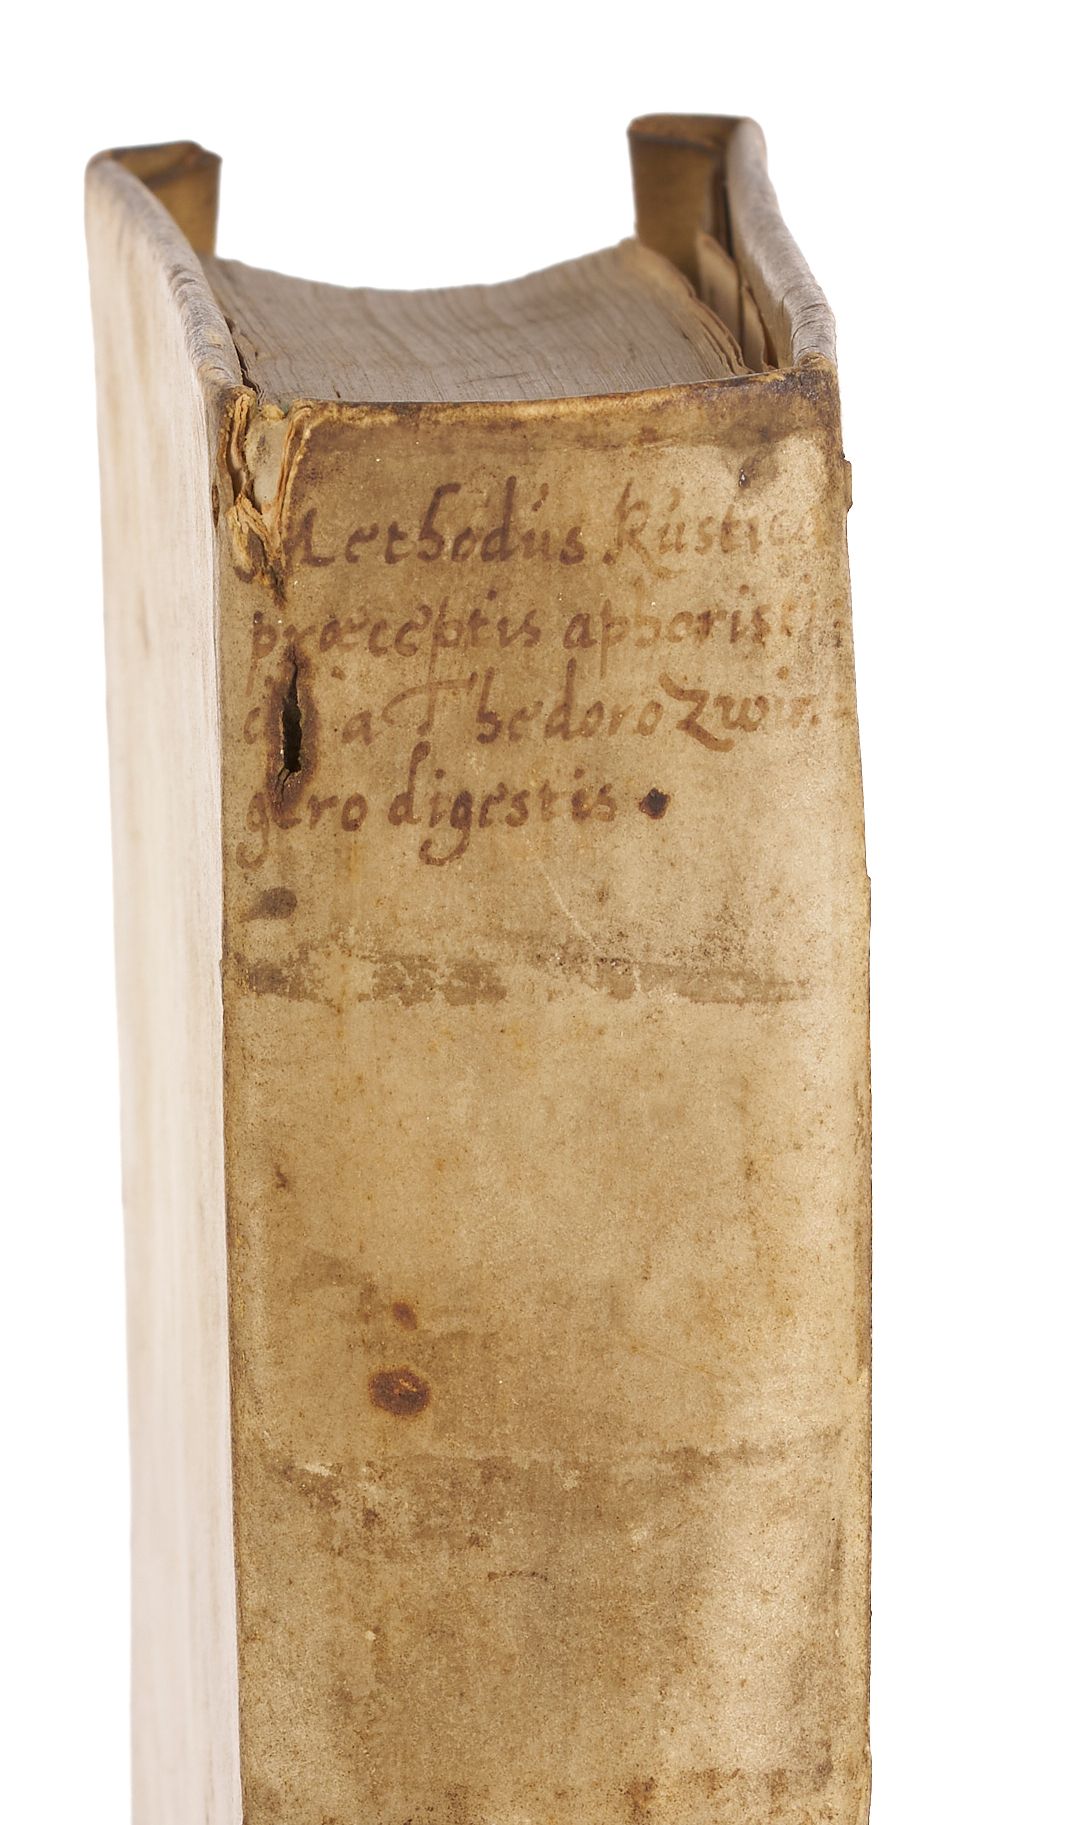 Methodus Rustica
præceptis aphoristi
a Thedoro Zwin=
gero digestis.